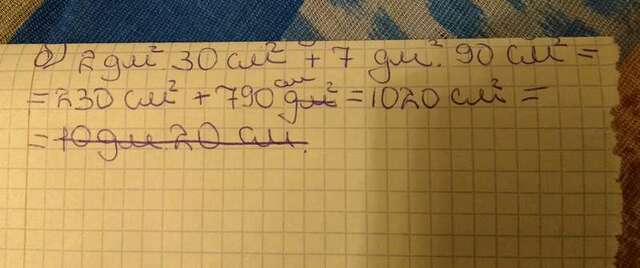 б) 2 дм² 30 см² + 7 дм² 90 см² =
= 230 см² + 790 см² = 1020 см² =
= 10 дм 20 см.